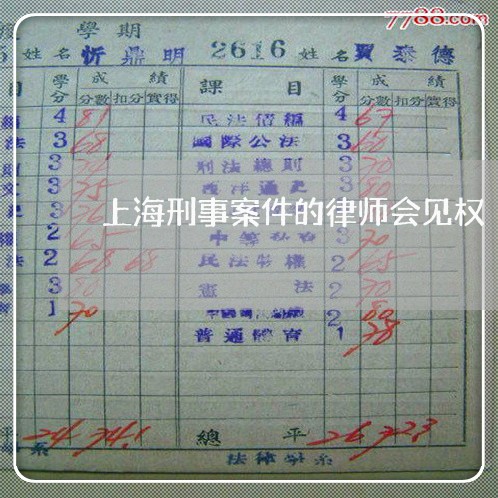 7788.com
學期
5 姓名 忻鼎明 2616 姓名 賈泰德
目 學分 成績 課目 學分 成績
分數 扣分 實得 分數 扣分 實得
4 81 民法債編 4 67
法 3 68 國際公法 3 60
3 刑法總則 3 70
3 75 西洋通史 3 80
上海刑事案件的律师会见权
2 65 3 70
法 2 68 68 民法物權 2 65
3 80 憲法 2 70
1 70 2 80
普通體育 1 78
平 24 74.1 總平 26 72.3
系 法律學系